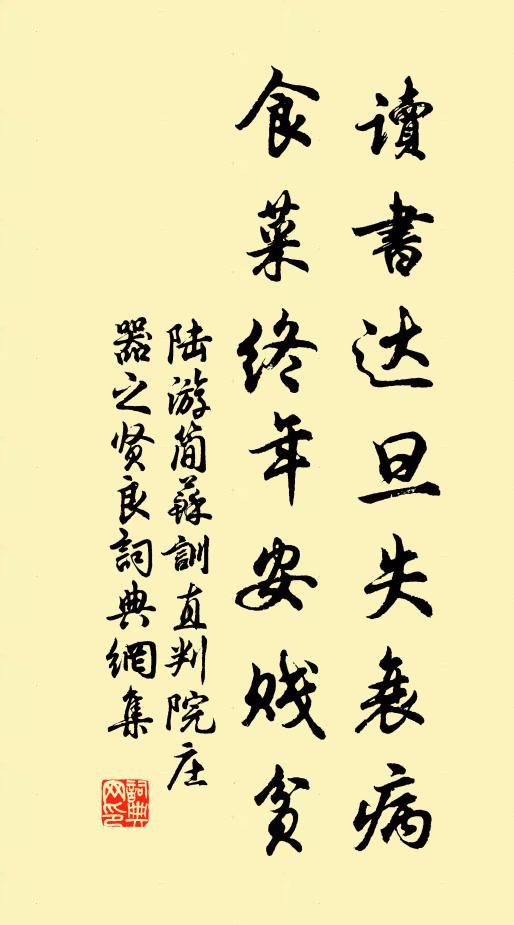 讀書达旦失衰病
食菜终年安贱贫
陆游简蘇訓直判院庄
器之贤良詞典網集
詞典网印